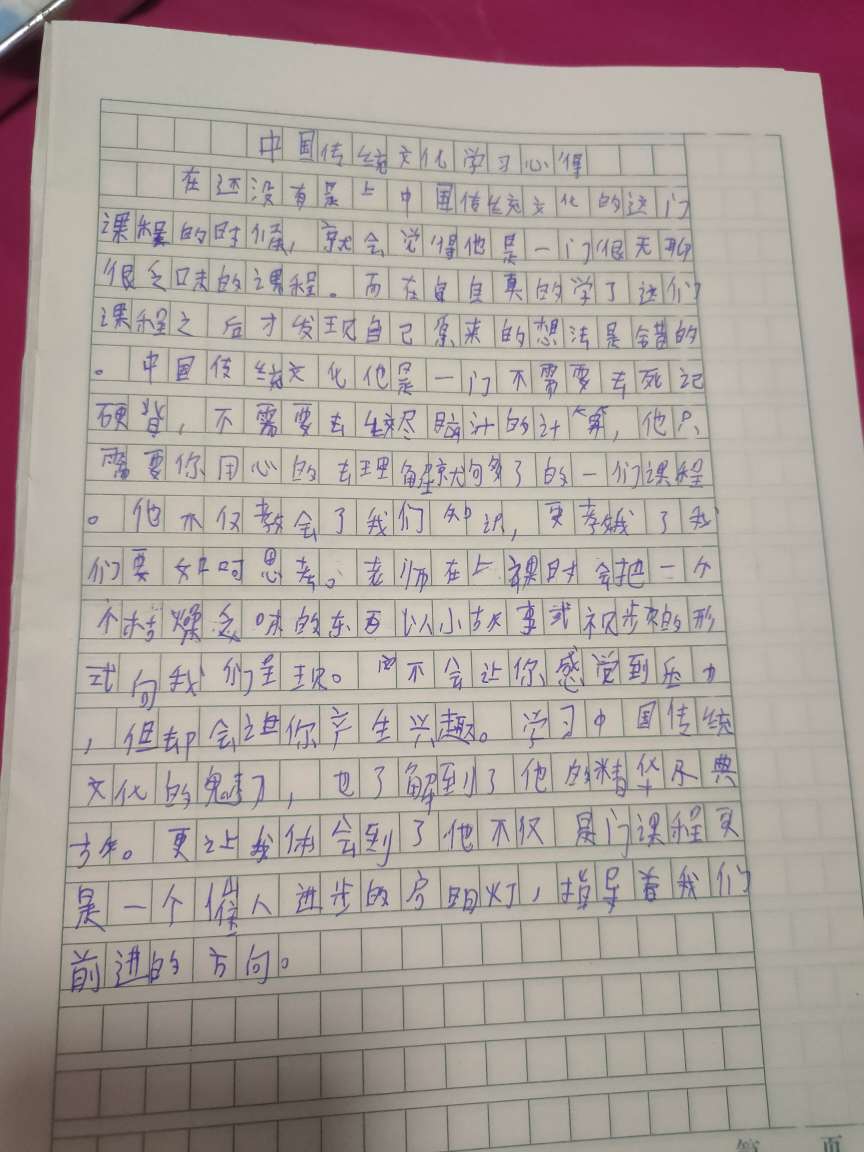 中国传统文化学习心得
在还没有是上中国传统文化的这门
课程的时候，就会觉得他是一门很无聊
很乏味的课程。而在自自真的学了这们
课程之后才发现自己原来的想法是错的
。中国传统文化他是一门不需要去死记
硬背，不需要去绞尽脑汁的计算，他只
需要你用心的去理解就够了的一们课程
。他不仅教会了我们知识，更教了我
们要如何思考。老师在上课时会把一个
个枯燥乏味的东西以小故事或视步频的形
式向我们呈现。不会让你感觉到压力
，但却会让你产生兴趣。学习中国传统
文化的魅力，也了解到了他的精华及典
故。更让我体会到了他不仅是门课程更
是一个催人进步的启明灯，指导着我们
前进的方向。
第 页